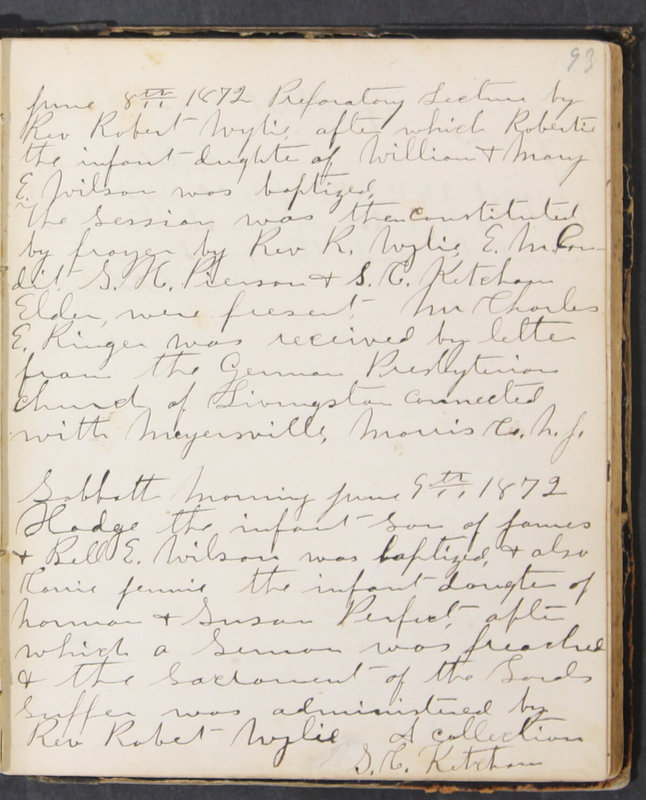 93
June 8th 1872 Preforatory Lecture by
Rev Robert Wylie, after which Robertie
the infant daughte of William & Mary
E. Wilson was baptized,
The Session was then constituted
by prayer by Rev R. Wylie, E. M. Con-
dit S. H. Pierson & S. C. Ketcham
Elder, were present. Mr Charles
E. Ringer was received by lette
from the German Presbyterian
church of Livingston connected
with Meyersville, Morris Co. N. J.
Sabbath Morning June 9th 1872
Hodge the infant son of James
& Bell E. Wilson was baptized, & also
Jennie the infant dougter of
Norman & Susan Perfect after
which a Sermon was preached
& the Sacrament of the Lords
Supper was administered by
Rev Robet Wylie A collection
S. C. Ketcham